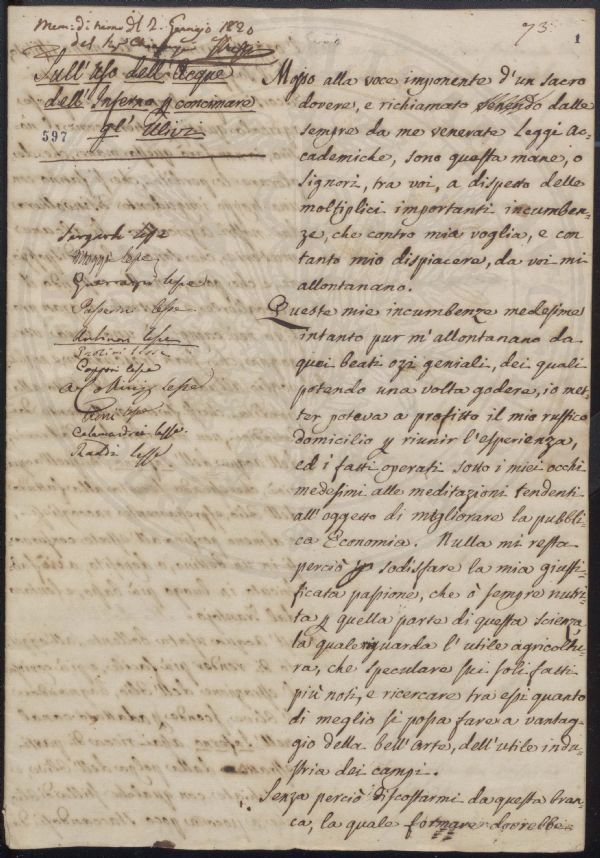 Mem: di turno del 2. Gennajo 1820
del Sig.
73.
1
Sull' Uso dell' Acque
dell' Inferno p concimare
gl' Ulivi
597
Mosso alla voce imponente d'un sacro
dovere, e richiamato dalle
sempre da me venerate Leggi Ac-
cademiche, sono questa mane, o
Signori, tra voi, a dispetto delle
moltiplici importanti incumben-
ze, che contro mia voglia, e con
tanto mio dispiacere, da voi mi
allontanano.
Queste mie incumbenze medesime
intanto pur m'allontanano da
quei beati ozi geniali, dei quali
potendo una volta godere, io met-
ter poteva a profitto il mio rustico
domicilio p riunir l'esperienza,
ed i fatti operati sotto i miei occhi
medesimi alle meditazioni tendenti
all'oggetto di migliorare la pubbli-
ca Economia. Nulla mi resta
perciò p sodisfare la mia giusti-
ficata passione, che ò sempre nutri-
ta p quella parte di questa scienza,
la quale riguarda l'utile agricoltu-
ra, che speculare sui soli fatti
più noti, e ricercare tra essi quanto
di meglio si possa fare a vantag-
gio della bell'Arte, dell'utile indu-
stria dei campi.
Senza perciò discostarmi da questa bran-
ca, la quale formare dovrebbe
Sergardi lesse
lesse
lesse
Passerini lesse
Antinori lesse
Paolini lesse
Copponi lesse
lesse
lesse
Calamandrei lesse
Raddi lesse